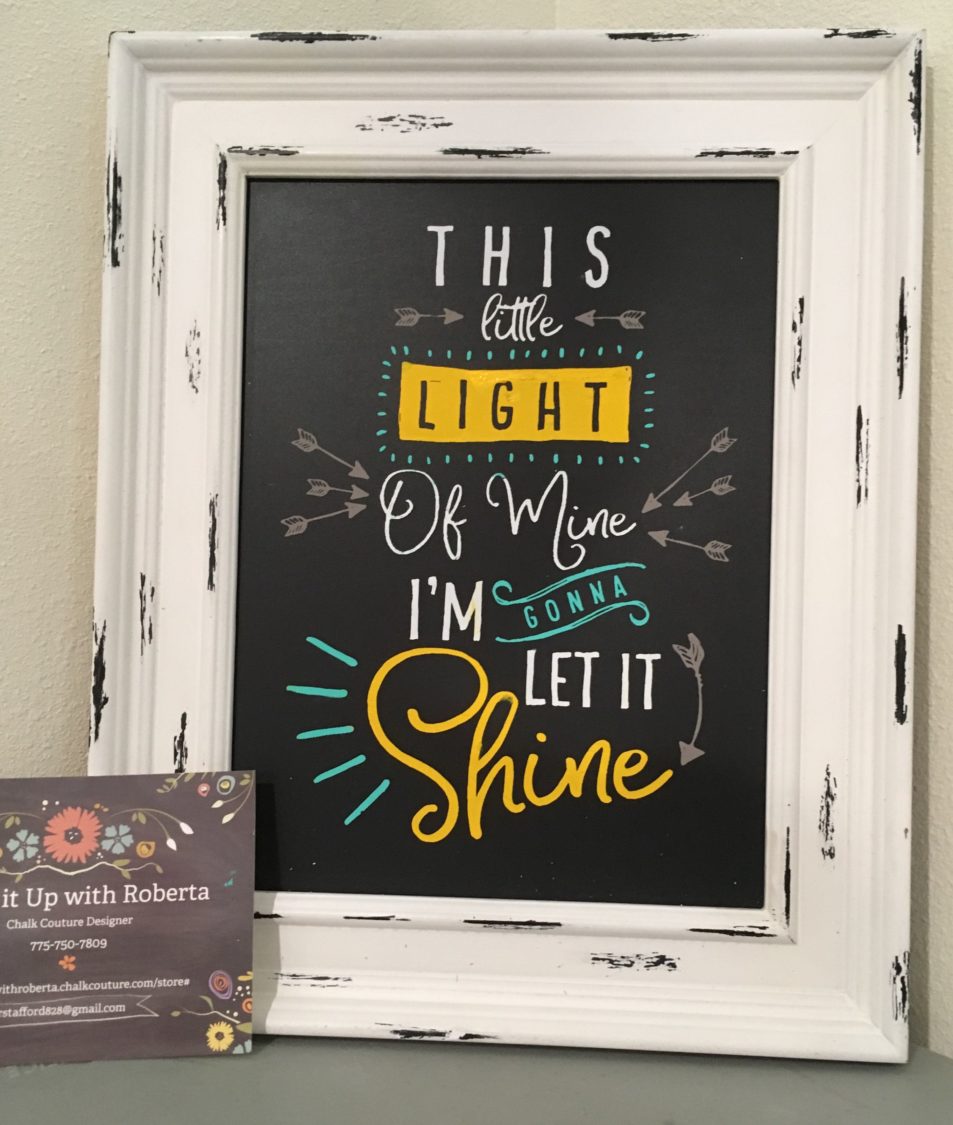 THIS
little
LIGHT
Of Mine
I'M GONNA
LET IT
Shine
it Up with Roberta
Chalk Couture Designer
775-750-7809
withroberta.chalkcouture.com/store#
rstafford828@gmail.com